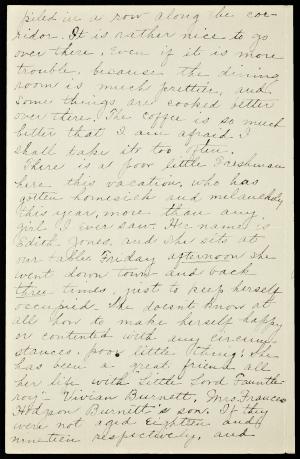 piled in a row along the cor-
ridor. It is rather nice to go
over there, even if it is more
trouble, because the dining
room is much prettier, and
some things are cooked better
over there. The coffee is so much
better that I am afraid I
shall take it too often.
There is a poor little Freshman
here this vacation, who has
gotten homesick and melancholy
this year, more than any
girl I ever saw. Her name is
Edith Jones, and she sits at
our table. Friday afternoon she
went down town and back
three times, just to keep herself
occupied. She doesn't know at
all how to make herself happy
or contented with any circum-
stances, poor little thing! She
has been a great friend all
her life with "Little Lord Fauntle-
roy" - Vivian Burnett, Mrs. Frances
Hodgson Burnett's son. If they
were not aged eighteen and
nineteen respectively, and